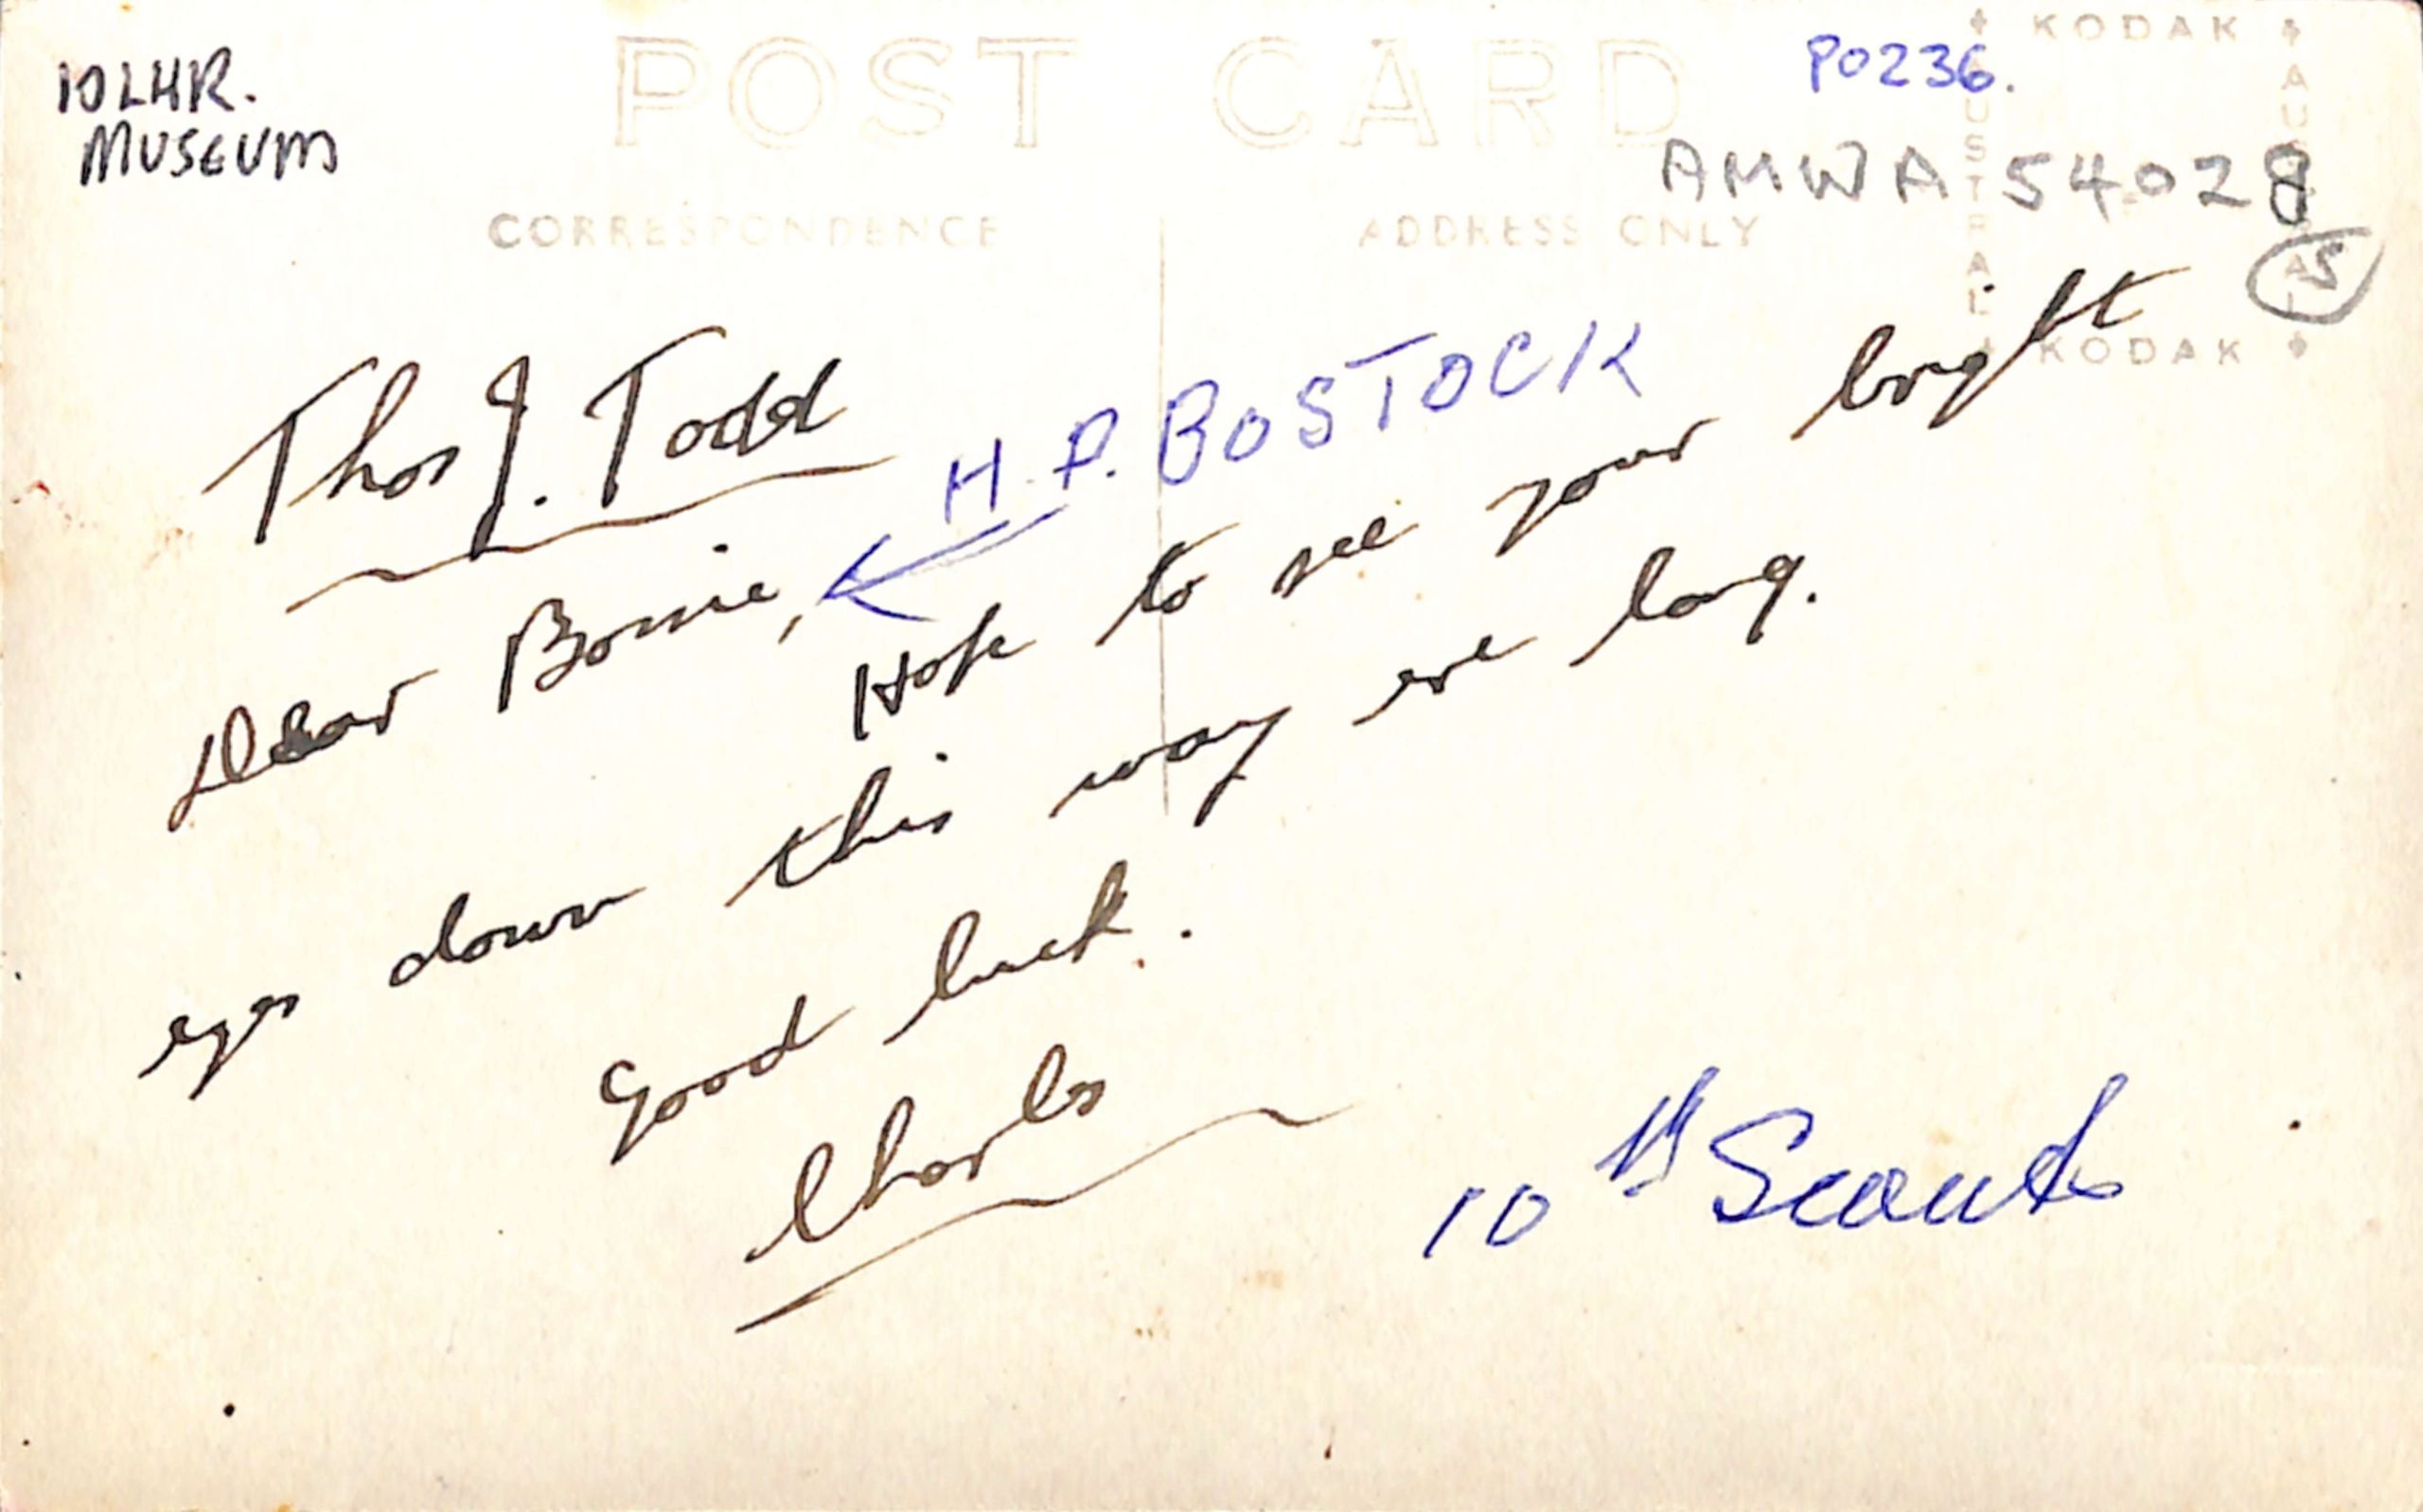 10LHR.
MUSEUM
POST CARD
P0236.
KODAK
AUSTRAL
KODAK
AMWA 54028
5
CORRESPONDENCE
ADDRESS ONLY
Thos J. Todd
H. P. BOSTOCK
Dear Bossie,
Hope to see your bright
eyes down this way ere long.
Good luck.
Charles
10th Scouts